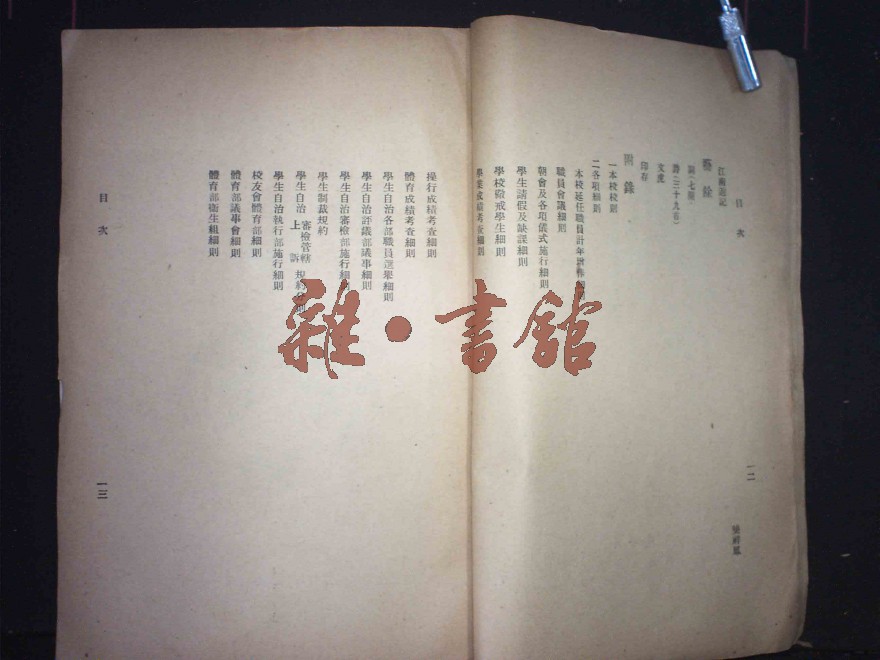 目次
江南遊記
藝餘
詞(七闋)
詩(三十九首)
文虎
印存
附錄
一本校校則
二各項細則
本校延任職員計年
職員會議細則
朝會及各項儀式施行細則
學生請假及缺課細則
學校懲戒學生細則
學業成績考查細則
一二
操行成績考查細則
體育成績考查細則
學生自治各部職員選舉細則
學生自治評議部議事細則
學生自治審檢部施行細則
學生制裁規約
學生自治審檢管轄上訴規約
學生自治執行部施行細則
校友會體育部細則
體育部議事會細則
體育部衛生組細則
目次
一三
雜•書館